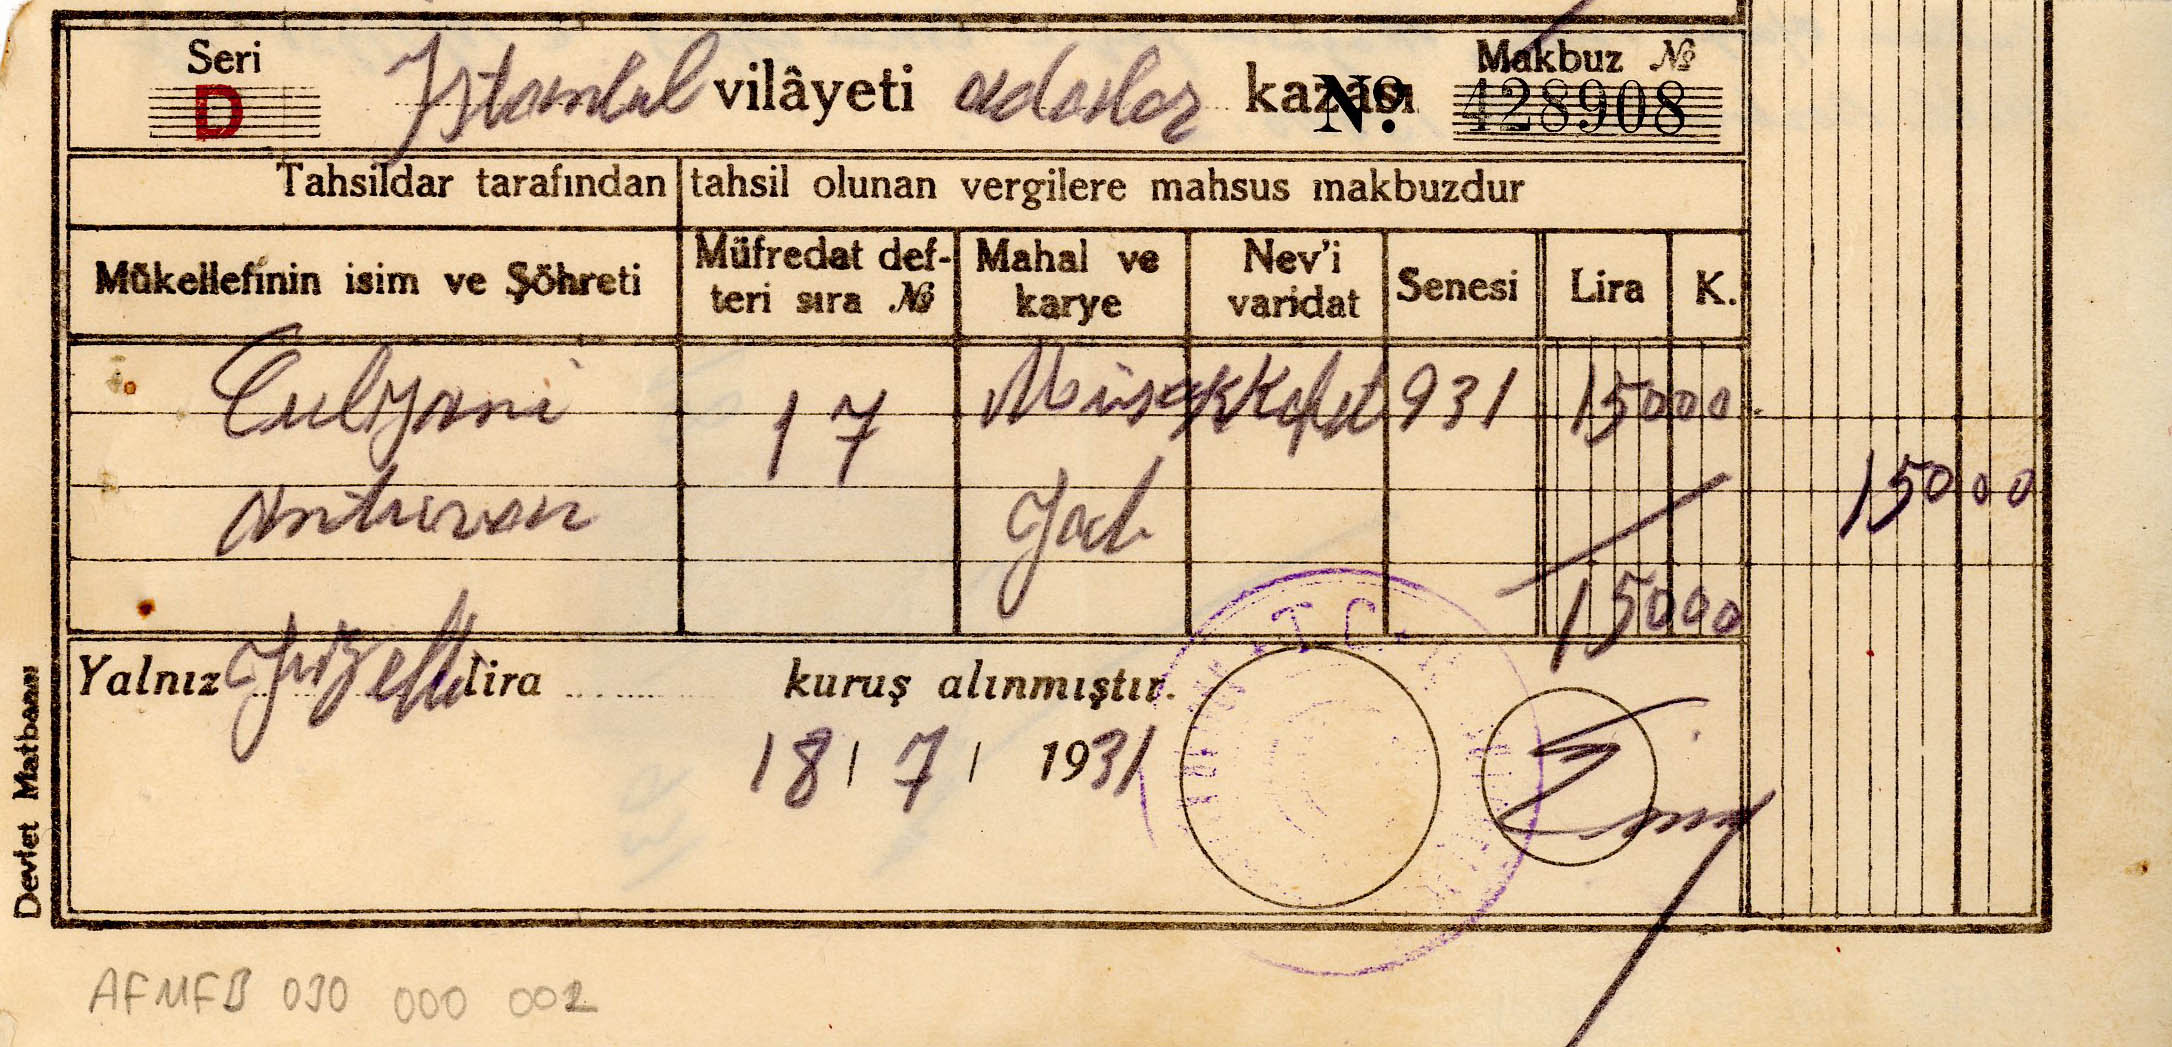 Seri
D
Istanbul vilâyeti adalar kazası
Makbuz №
No. 428908
Tahsildar tarafından tahsil olunan vergilere mahsus makbuzdur
Mükellefinin isim ve Şöhreti
Müfredat def-
teri sıra №
Mahal ve
karye
Nev'i
varidat
Senesi
Lira
K.
17
Müsakkafat
931
15000
15000
15000
Yalnız yüzelli lira ............ kuruş alınmıştır.
18 / 7 / 1931
T.C.
Devlet Matbaası
AFMFB 030 000 002